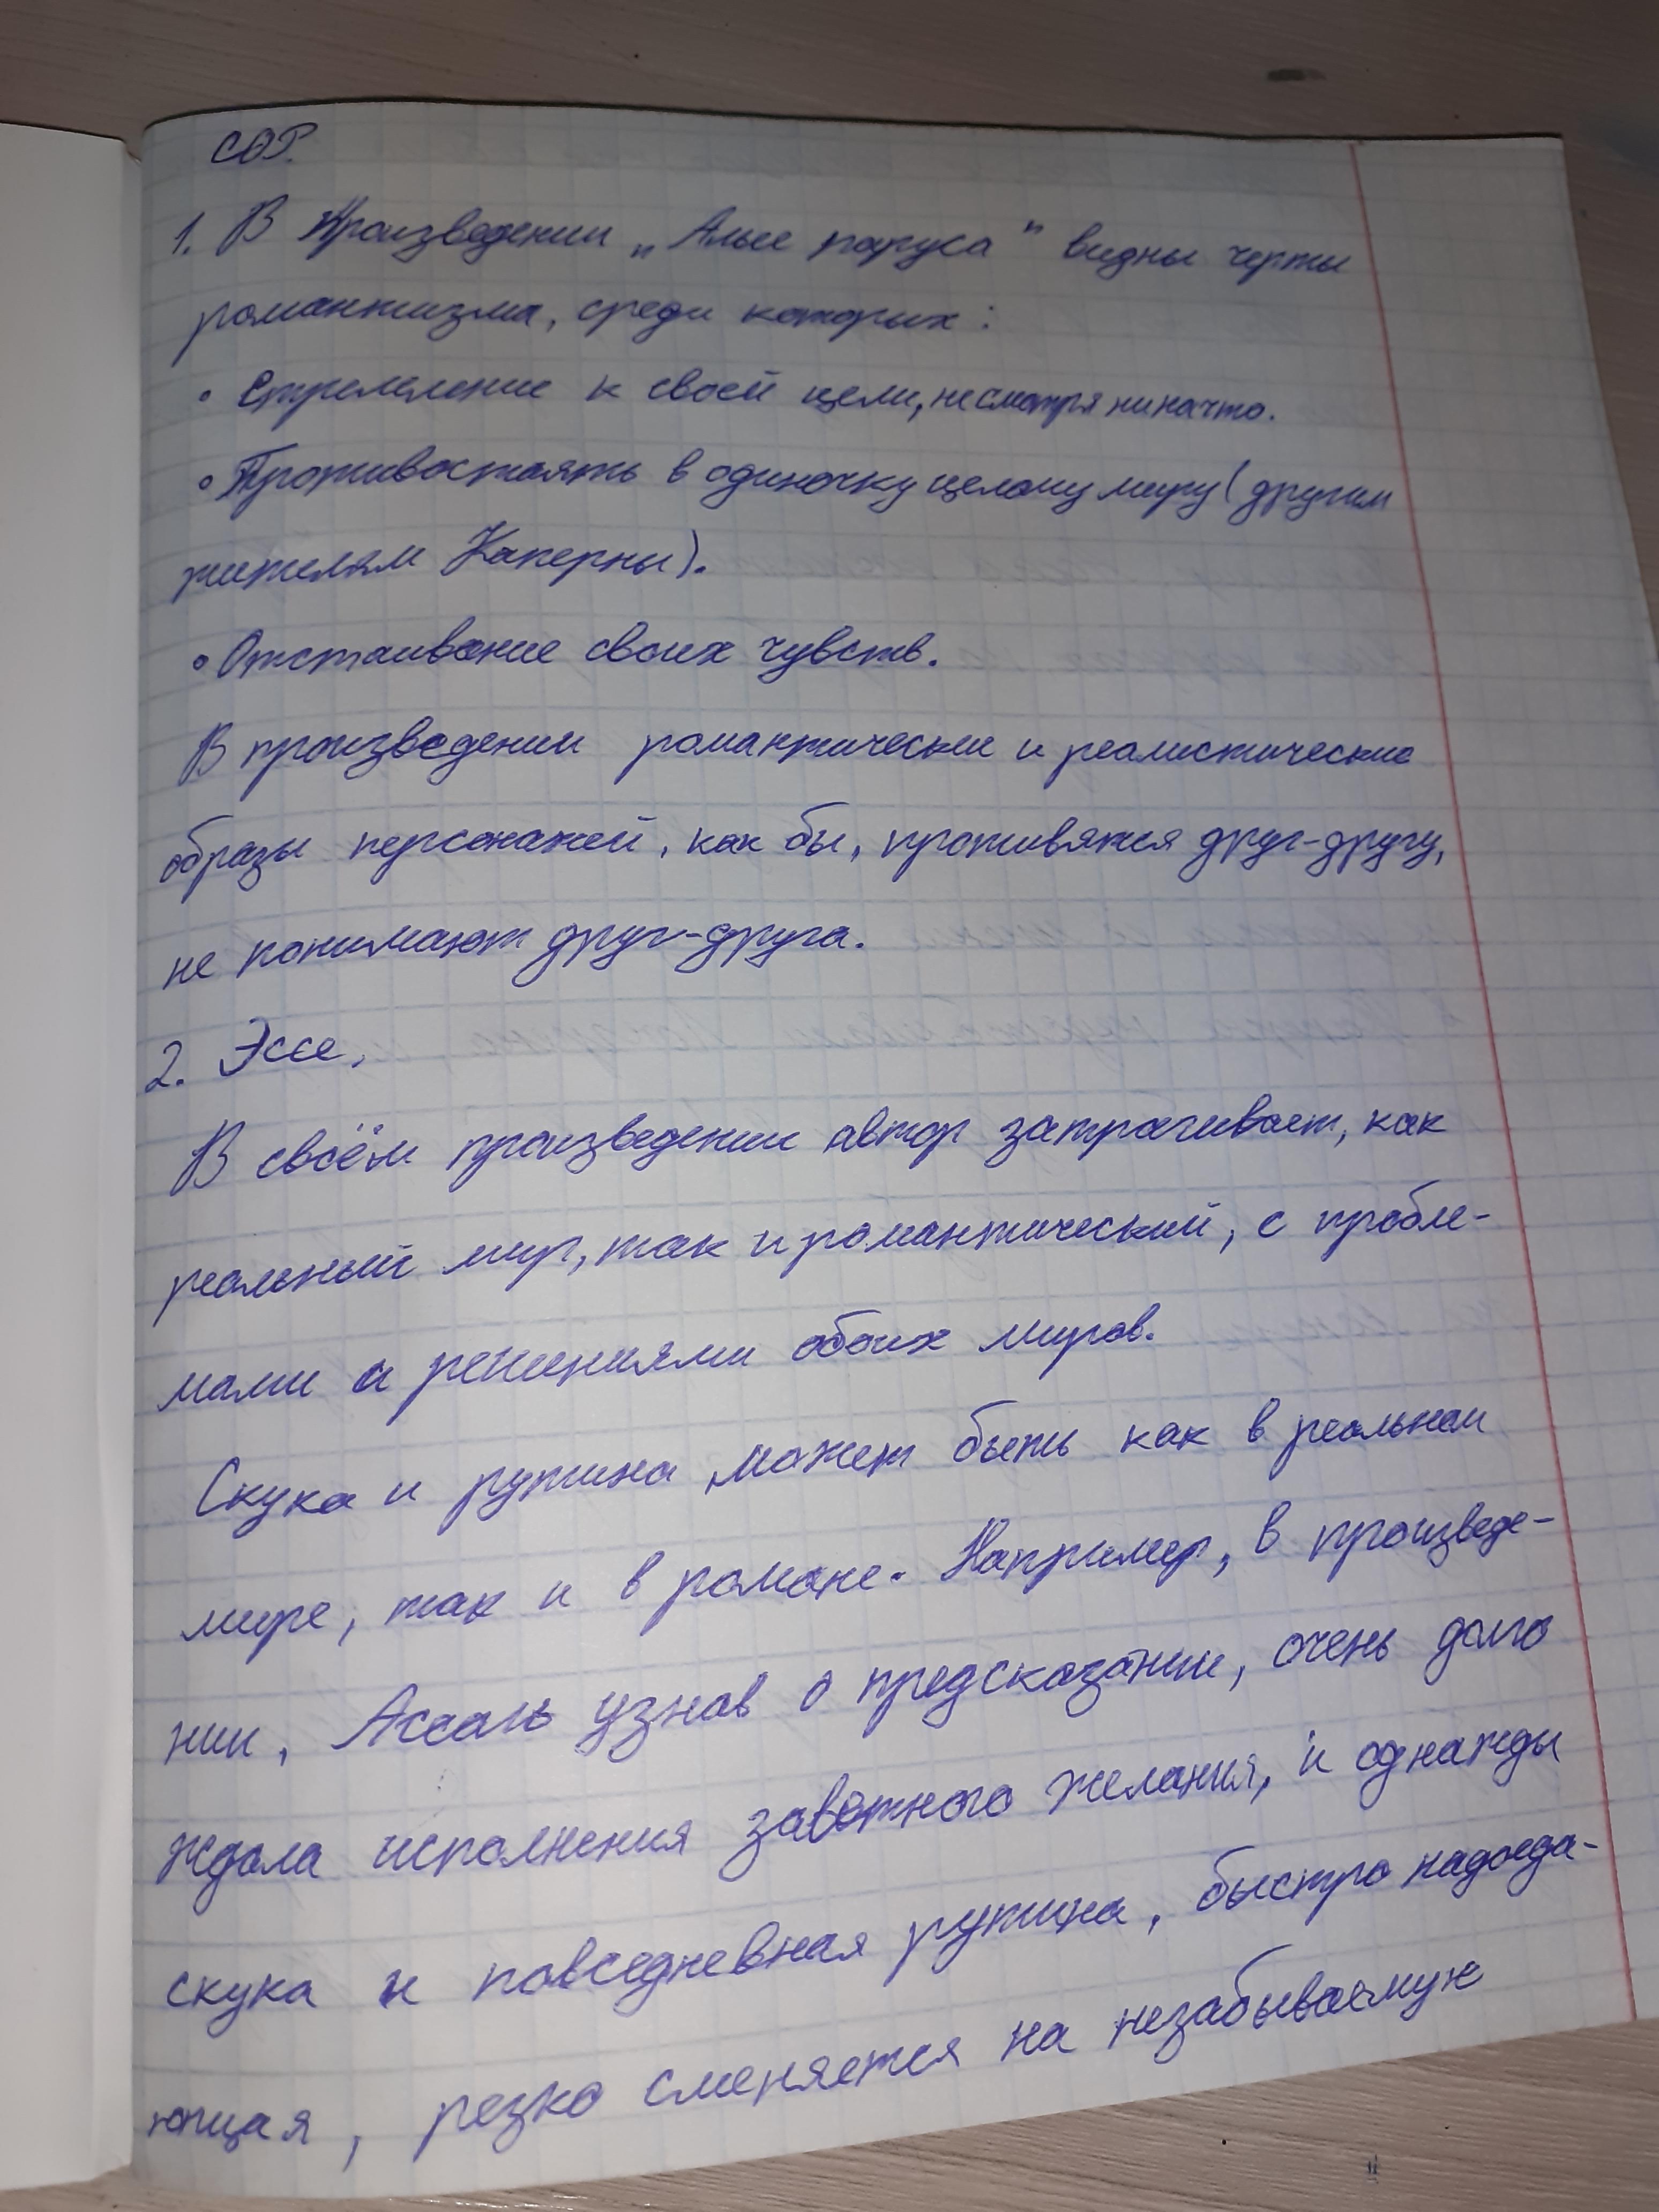 СОР.
1. В Произведении „Алые паруса" видны черты
романтизма, среди которых:
• Стремление к своей цели, несмотря ни на что.
• Противостоять в одиночку целому миру (другим
жителям Каперны).
• Отстаивание своих чувств.
В произведении романтические и реалистические
образы персонажей, как бы, противятся друг-другу,
не понимают друг-друга.
2. Эссе.
В своём произведении автор затрагивает, как
реальный мир, так и романтический, с пробле-
мами и решениями обоих миров.
Скука и рутина может быть как в реальном
мире, так и в романе. Например, в произведе-
нии, Ассоль узнав о предсказании, очень долго
ждала исполнения заветного желания, и однажды
скука и повседневная рутина, быстро надоеда-
ющая, резко сменяется на незабываемую